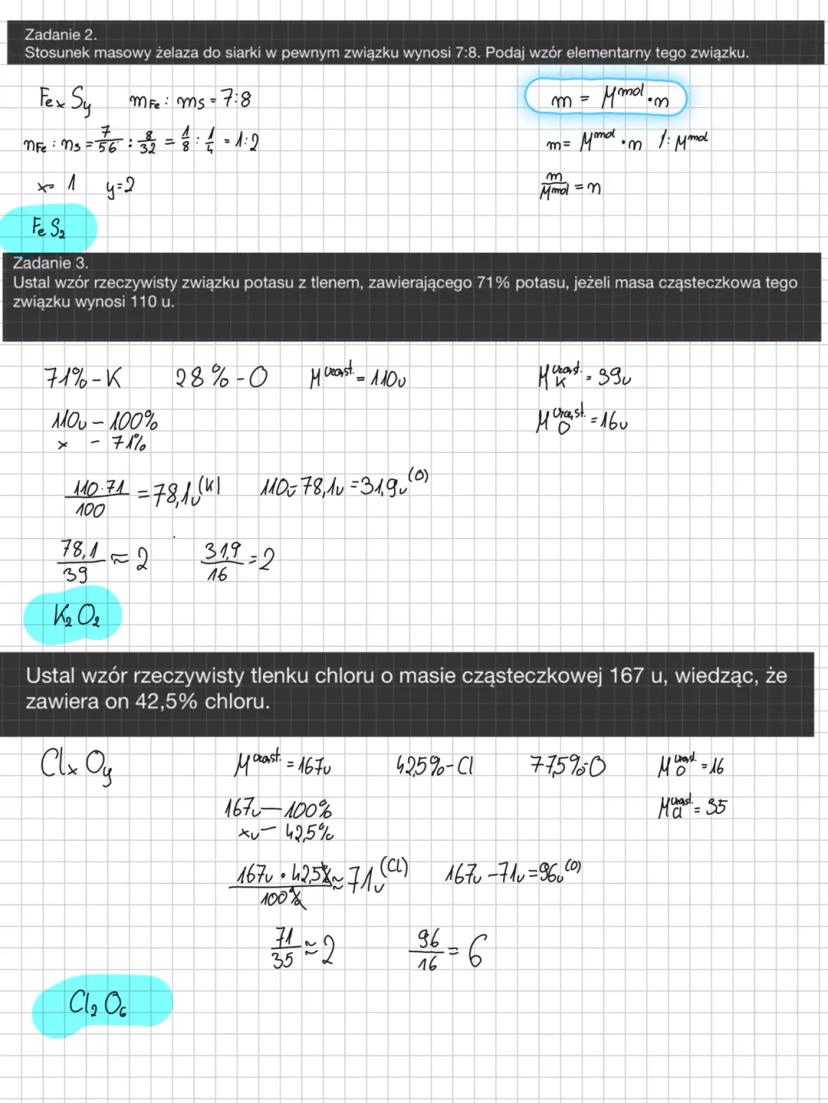 Zadanie 2.
Stosunek masowy żelaza do siarki w pewnym związku wynosi 7:8. Podaj wzór elementarny tego związku.
FexSy mFe : mS = 7:8 m = Mmol·n
nFe : nS = 7/56 : 8/32 = 1/8 : 1/4 = 1:2 m = Mmol·n /: Mmol
x= 1 y=2 m/Mmol = n
FeS2
Zadanie 3.
Ustal wzór rzeczywisty związku potasu z tlenem, zawierającego 71% potasu, jeżeli masa cząsteczkowa tego
związku wynosi 110 u.
71%-K 28%-O Mcząst. = 110u MK cząst. = 39u
110u – 100% MO cząst. = 16u
x – 71%
110·71/100 = 78,1u (K) 110u-78,1u = 31,9u (O)
78,1/39 ≈ 2 31,9/16 = 2
K2O2
Ustal wzór rzeczywisty tlenku chloru o masie cząsteczkowej 167 u, wiedząc, że
zawiera on 42,5% chloru.
ClxOy Mcząst. = 167u 42,5%-Cl 77,5%-O MO cząst. = 16
167u – 100% MCl cząst. = 35
xu – 42,5%
167u · 42,5%/100% ≈ 71u (Cl) 167u-71u = 96u (O)
71/35 ≈ 2 96/16 = 6
Cl2O6